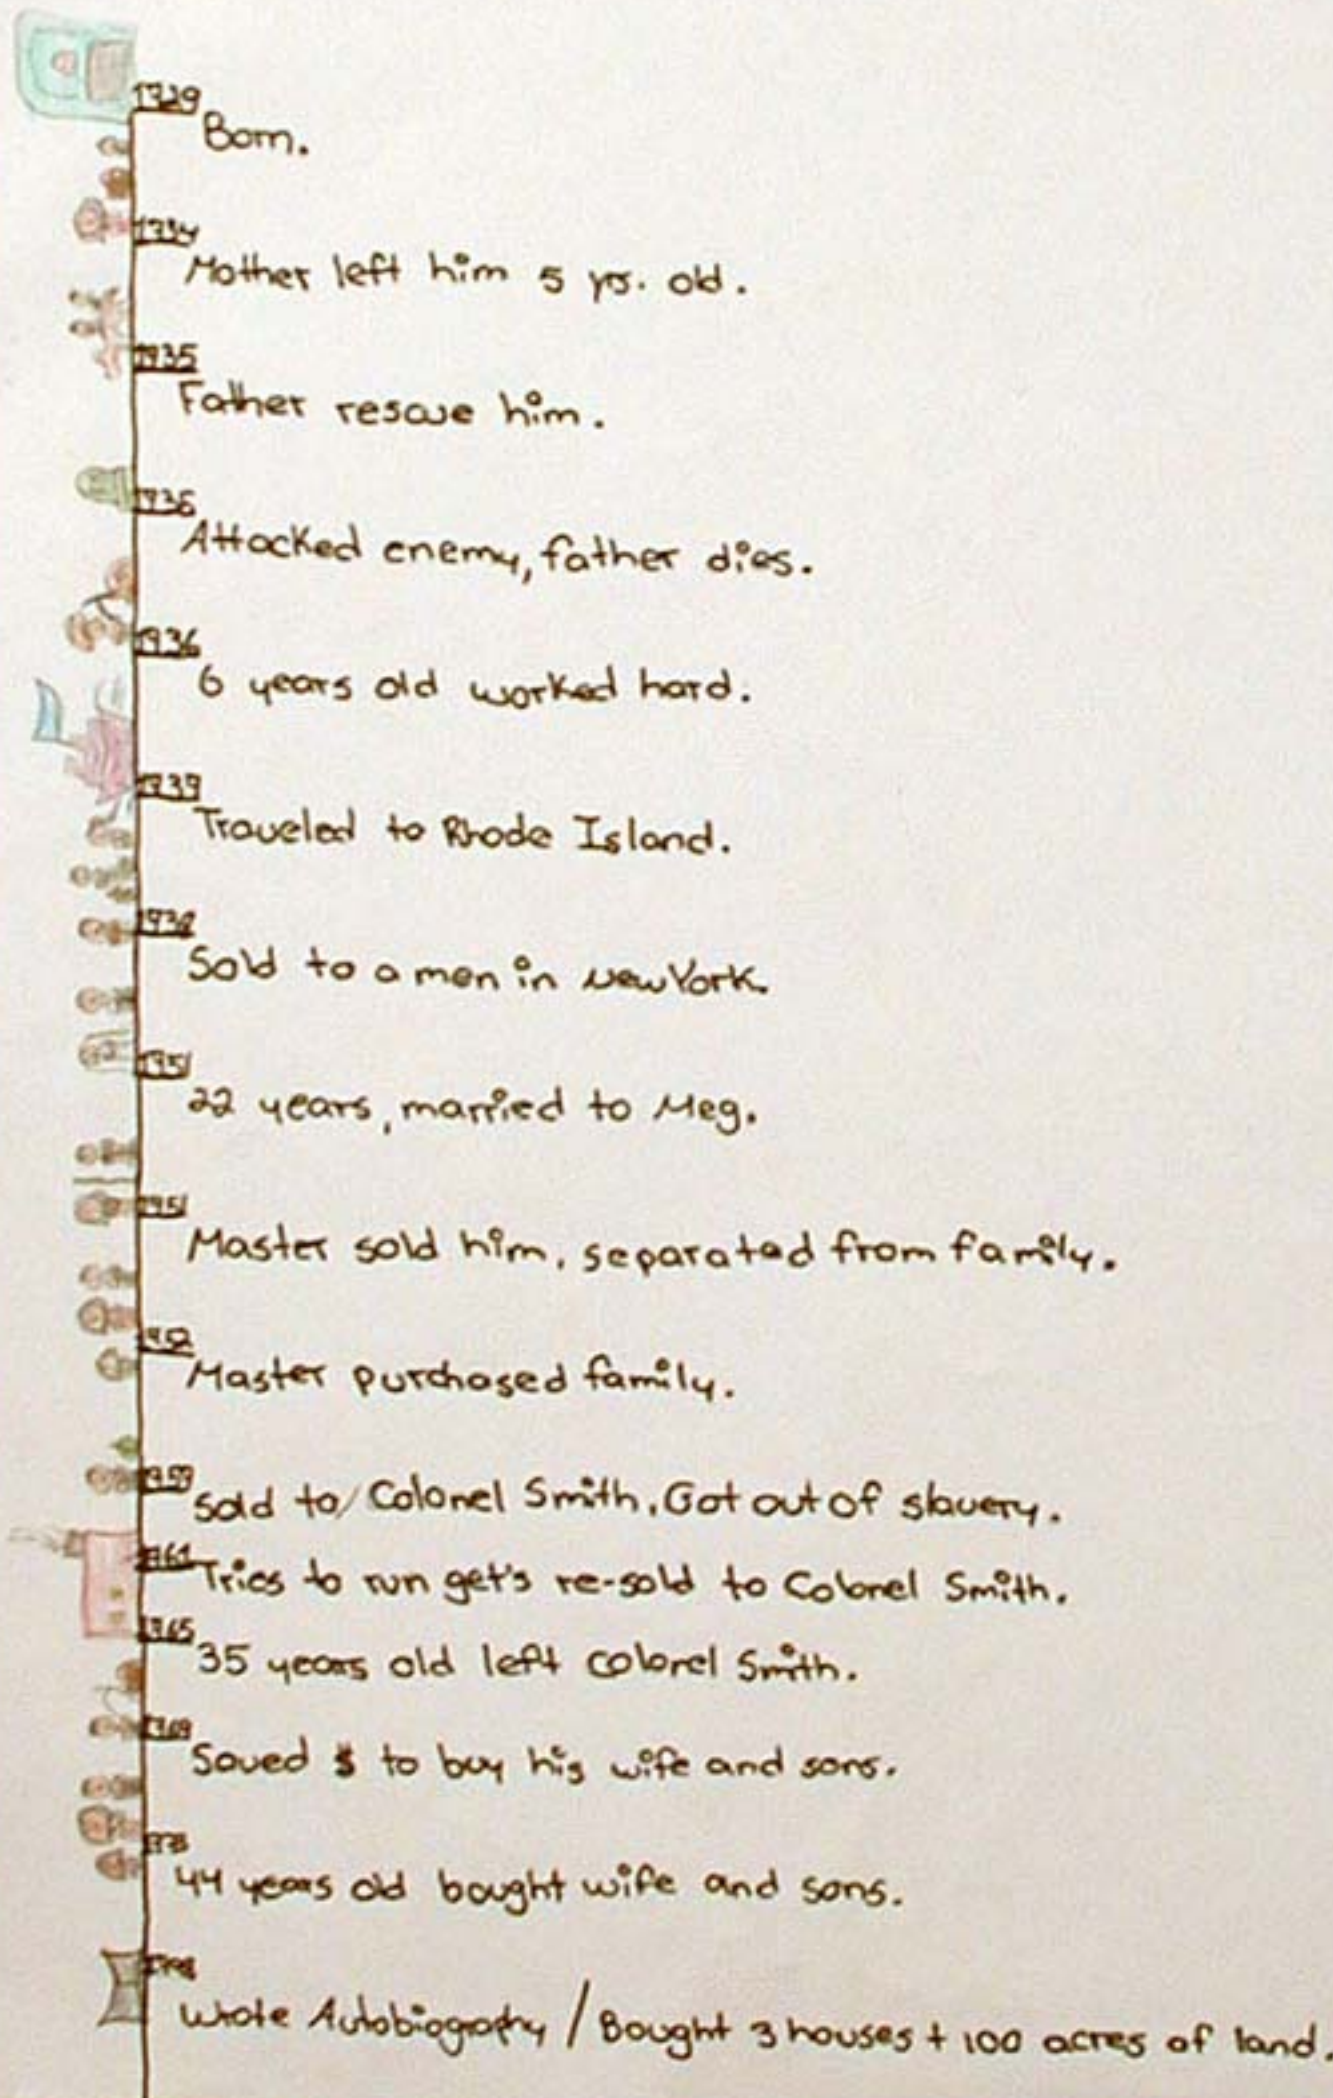 1729
Born.
1734
Mother left him 5 yrs. old.
1735
Father rescue him.
1736
Attacked enemy, father dies.
1736
6 years old worked hard.
1739
Traveled to Rhode Island.
Sold to a men in New York.
1751
22 years, married to Meg.
1751
Master sold him, separated from family.
1752
Master purchased family.
1759
Sold to/Colonel Smith. Got out of slavery.
1761
Tries to run get's re-sold to Colonel Smith.
1765
35 years old left colonel Smith.
1769
Saved $ to buy his wife and sons.
1773
44 years old bought wife and sons.
1798
Wrote Autobiography / Bought 3 houses + 100 acres of land.